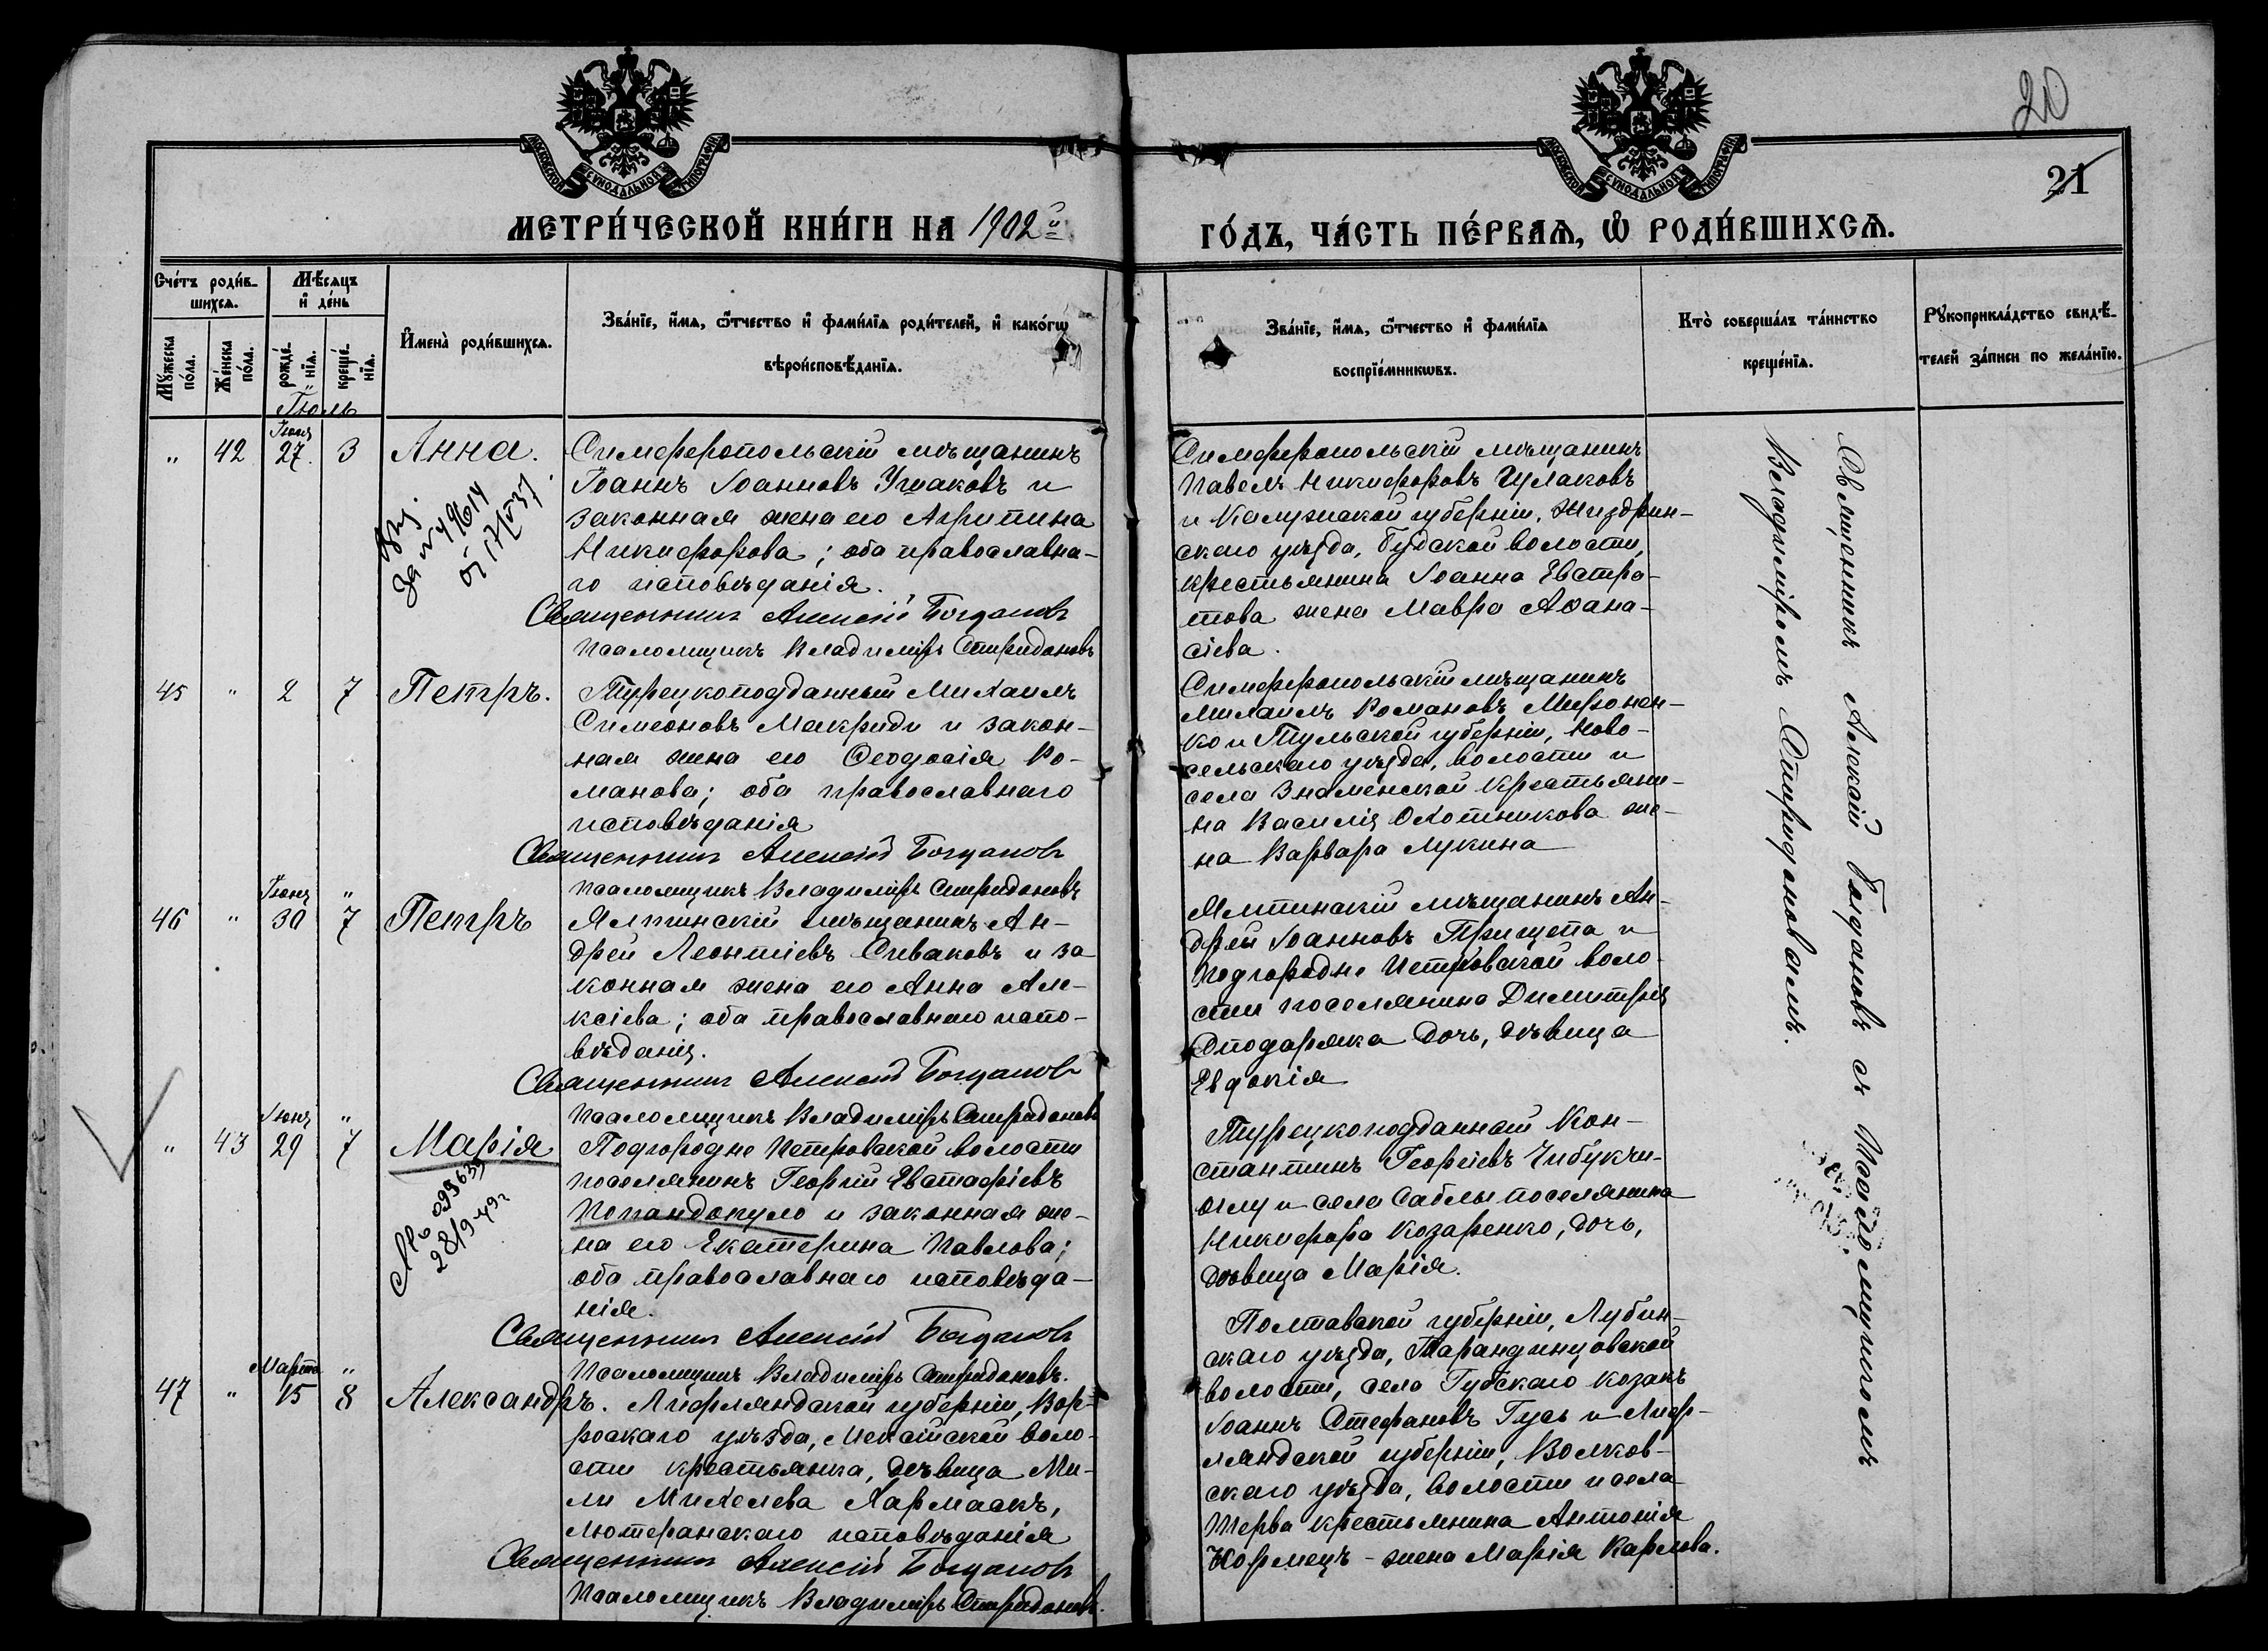 МОСКОВСКОЙ СѴНОДАЛЬНОЙ ТИПОГРАФІИ
МОСКОВСКОЙ СѴНОДАЛЬНОЙ ТИПОГРАФІИ
20
21
МЕТРИ́ЧЕСКОЙ КНИ́ГИ НА 1902й
ГО́ДЪ, ЧА́СТЬ ПЕ́РВАЯ, Ѡ РОДИ́ВШИХСЯ.
Счетъ родив-
шихся.
Мужеска пола.
Женска пола.
Мѣсяцъ
и день
рожде-
нія.
креще-
нія.
Имена родившихся.
Званіе, имя, отчество и фамилія родителей, и какогѡ
вѣроисповѣданія.
Званіе, имя, отчество и фамилія
воспріемниковъ.
Кто совершалъ таинство
крещенія.
Рукоприкладство свидѣ-
телей записи по желанію.
Іюль
Іюня
" 42 27 3 Анна.
За № 49614
Симферопольскій мѣщанинъ
Іоаннъ Іоанновъ Ушаковъ и
законная жена его Агрипина
Никифорова; оба православна-
го исповѣданія.
Священникъ Алексій Богдановъ
Псаломщикъ Владиміръ Спиридоновъ
Симферопольскій мѣщанинъ
Павелъ Никифоровъ Чулаковъ
и Калужской губерніи, Жиздрин-
скаго уѣзда, Будской волости,
крестьянина Іоанна Евстра-
това жена Мавра Аѳана-
сіева.
45 " 2 7 Петръ.
Турецкоподданный Михаилъ
Симеоновъ Макриди и закон-
ная жена его Ѳеодосія Ро-
манова; оба православнаго
исповѣданія
Священникъ Алексій Богдановъ
Псаломщикъ Владиміръ Спиридоновъ
Симферопольскій мѣщанинъ
Михаилъ Романовъ Миронен-
ко и Тульской губерніи, Ново-
сельскаго уѣзда, волости и
села Знаменской крестьяни-
на Василія Охотникова же-
на Варвара Лукина
Іюня "
46 " 30 7 Петръ
Ялтинскій мѣщанинъ Ан-
дрей Леонтіевъ Сиваковъ и за
конная жена его Анна Але-
ксіева; оба православнаго испо-
вѣданія.
Священникъ Алексій Богдановъ
Псаломщикъ Владиміръ Спиридоновъ
Ялтинскій мѣщанинъ Ан-
дрей Іоанновъ Прищепа и
Подгородне Петровской воло-
сти поселянина Димитрія
Сподаряка дочь, дѣвица
Евдокія
Іюня "
" 43 29 7 Марія
№ 099639
28/9 49г
Подгородне Петровской волости
поселянинъ Георгій Евстафіевъ
Попандопуло и законная же-
на его Екатерина Павлова;
оба православнаго исповѣда-
нія.
Священникъ Алексій Богдановъ
Псаломщикъ Владиміръ Спиридоновъ.
Турецкоподданный Кон-
стантинъ Георгіевъ Чибукчи-
оглу и села Саблы поселянина
Никифора Козаренко, дочь,
дѣвица Марія.
Марта "
47 " 15 8 Александръ.
Лифляндской губерніи, Вер-
роскаго уѣзда, воло-
сти крестьянка, дѣвица Ми-
ли Михелева Хармаскъ,
Лютеранскаго исповѣданія
Священникъ Алексій Богдановъ
Псаломщикъ Владиміръ Спиридоновъ.
Полтавской губерніи, Лубен-
скаго уѣзда, Тарандинцовской
волости, села Губскаго козакъ
Іоаннъ Стефановъ Гусь и Лиф-
ляндской губерніи, Волков-
скаго уѣзда, волости и села
Терва крестьянина Антонія
Кормецъ - жена Марія Карлова.
Священникъ Алексій Богдановъ съ Псаломщикомъ
Владиміромъ Спиридоновымъ.